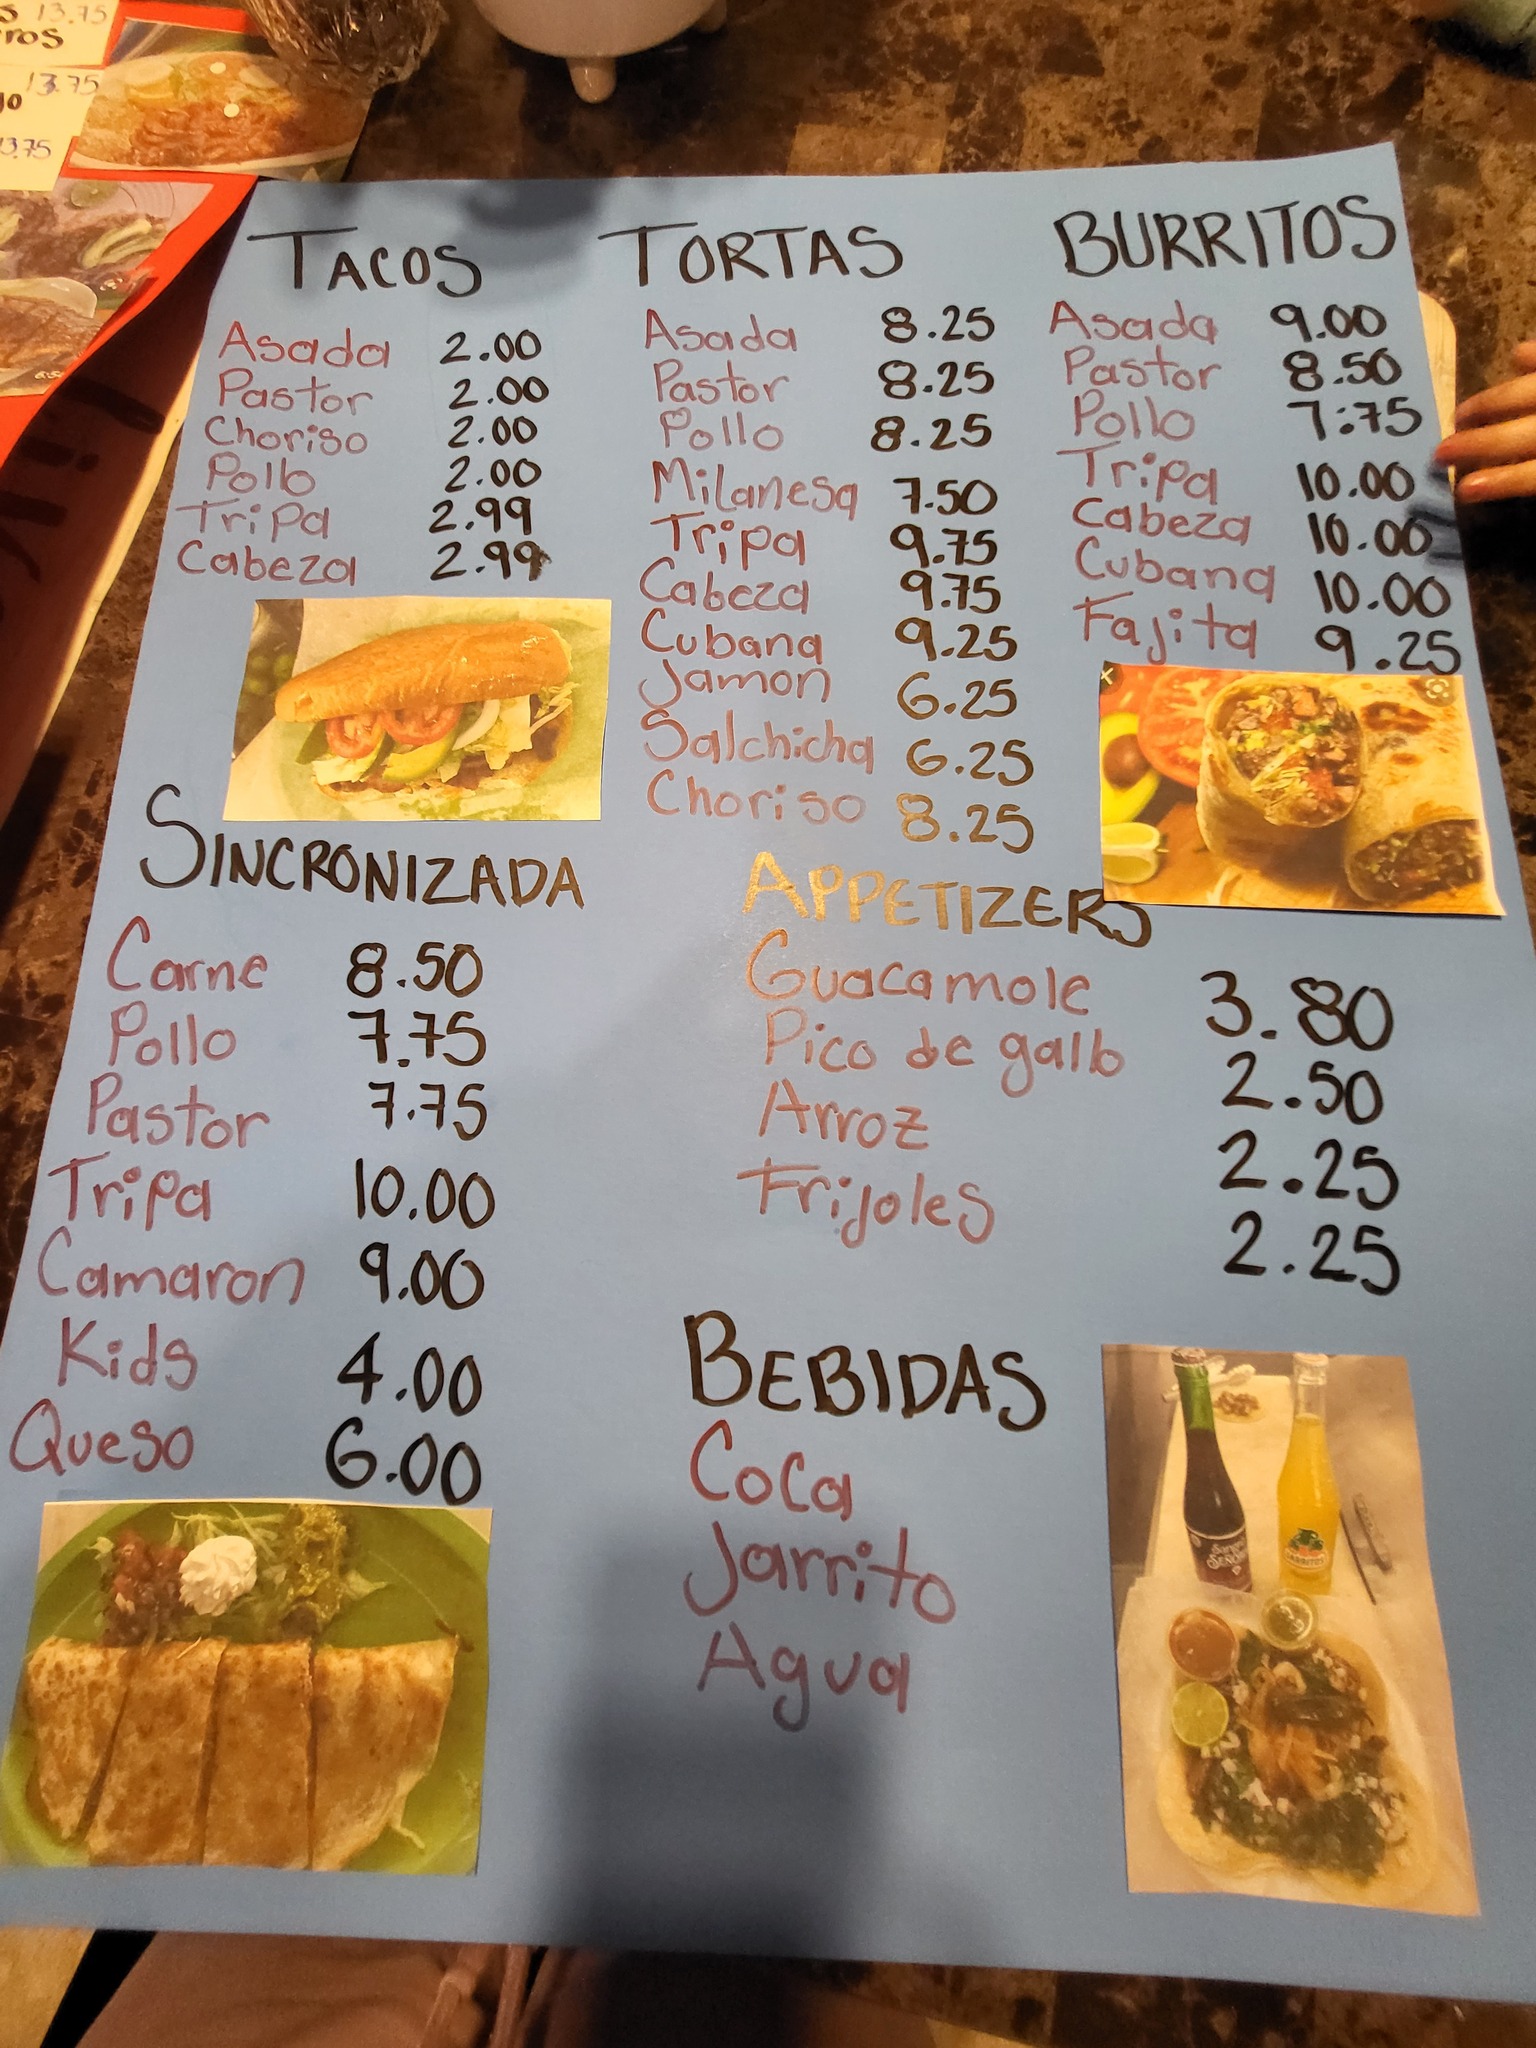 13.75
ros
13.75
13.75
TACOS
Asada 2.00
Pastor 2.00
Choriso 2.00
Pollo 2.00
Tripa 2.99
Cabeza 2.99
TORTAS
Asada 8.25
Pastor 8.25
Pollo 8.25
Milanesa 7.50
Tripa 9.75
Cabeza 9.75
Cubana 9.25
Jamon 6.25
Salchicha 6.25
Choriso 8.25
BURRITOS
Asada 9.00
Pastor 8.50
Pollo 7.75
Tripa 10.00
Cabeza 10.00
Cubana 10.00
Fajita 9.25
SINCRONIZADA
Carne 8.50
Pollo 7.75
Pastor 7.75
Tripa 10.00
Camaron 9.00
Kids 4.00
Queso 6.00
APPETIZERS
Guacamole 3.80
Pico de gallo 2.50
Arroz 2.25
Frijoles 2.25
BEBIDAS
Coca
Jarrito
Agua
JARRITOS